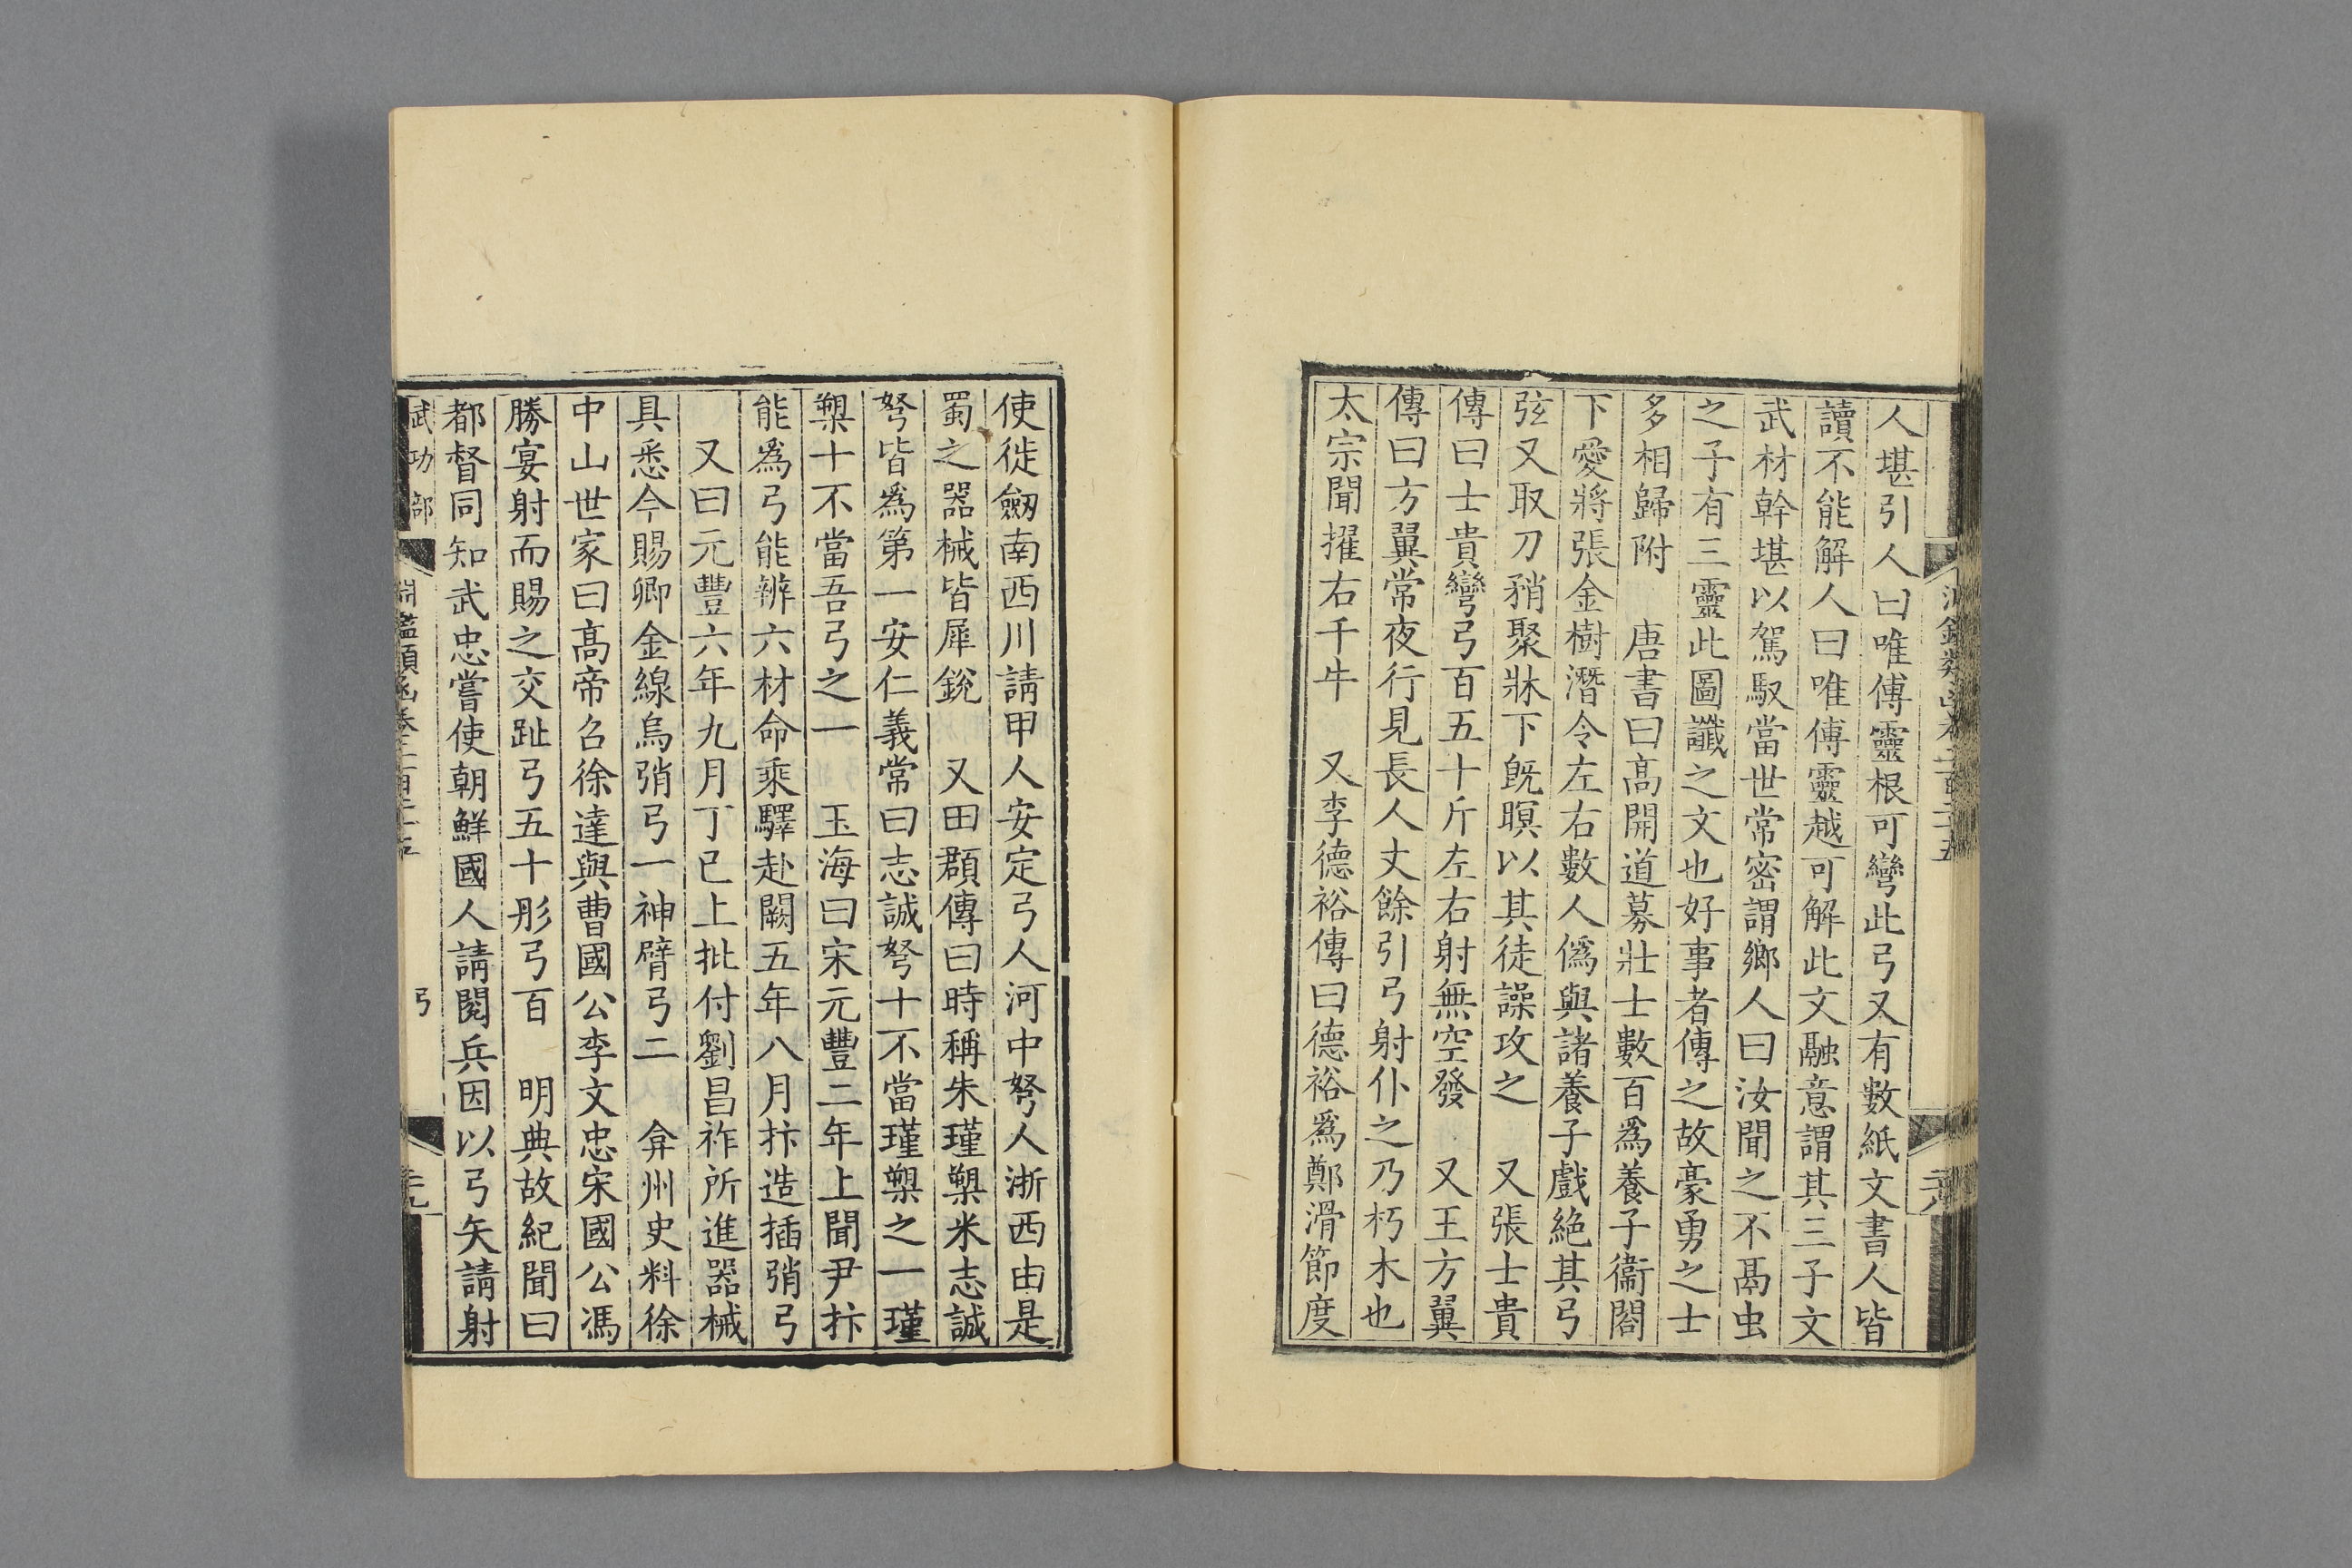 人堪引人曰唯傅靈根可彎此弓又有數紙文書人皆
讀不能解人曰唯傅靈越可解此文融意謂其三子文
武材幹堪以駕馭當世常密謂鄉人曰汝聞之不鬲虫
之子有三靈此圖讖之文也好事者傳之故豪勇之士
多相歸附　唐書曰高開道募壯士數百爲養子衞閤
下愛將張金樹潛令左右數人僞與諸養子戲絶其弓
弦又取刀矟聚牀下旣暝以其徒譟攻之　又張士貴
傳曰士貴彎弓百五十斤左右射無空發　又王方翼
傳曰方翼常夜行見長人丈餘引弓射仆之乃朽木也
太宗聞擢右千牛　又李德裕傳曰德裕爲鄭滑節度
使徙劔南西川請甲人安定弓人河中弩人浙西由是
蜀之器械皆犀銳　又田頵傳曰時稱朱瑾槊米志誠
弩皆爲第一安仁義常曰志誠弩十不當瑾槊之一瑾
槊十不當吾弓之一　玉海曰宋元豐二年上聞尹抃
能爲弓能辨六材命乘驛赴闕五年八月抃造插弰弓
又曰元豐六年九月丁已上批付劉昌祚所進器械
具悉今賜卿金線烏弰弓一神臂弓二　弇州史料徐
中山世家曰高帝召徐達與曹國公李文忠宋國公馮
勝宴射而賜之交趾弓五十彤弓百　明典故紀聞曰
都督同知武忠嘗使朝鮮國人請閱兵因以弓矢請射
武功部　鑑類函卷二百二十五　弓　二十九